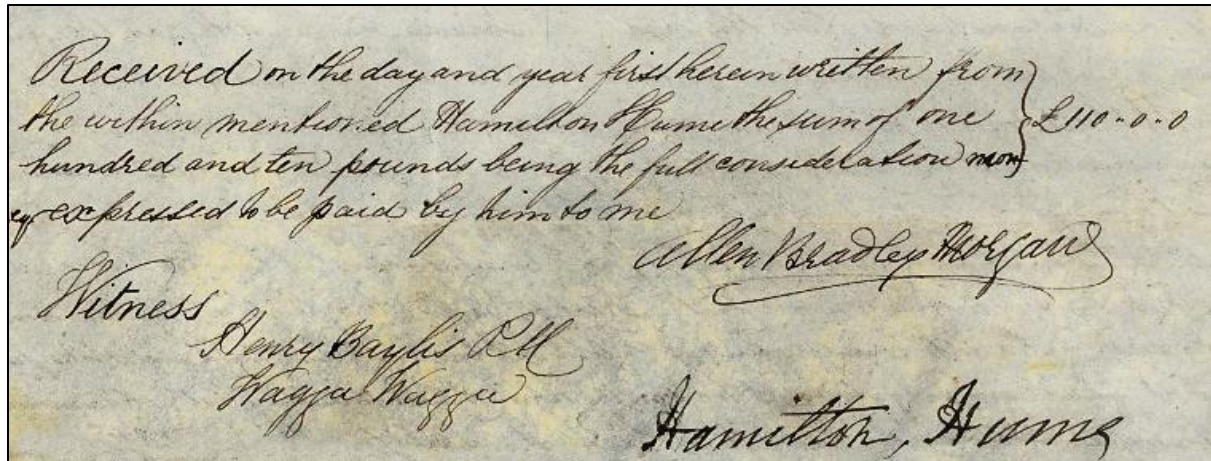 Received on the day and year first herein written from
the within mentioned Hamilton Hume the sum of one £110-0-0
hundred and ten pounds being the full consideration mon-
ey expressed to be paid by him to me
Allen Bradley Morgan
Witness
Henry Baylis P.M
Wagga Wagga
Hamilton, Hume